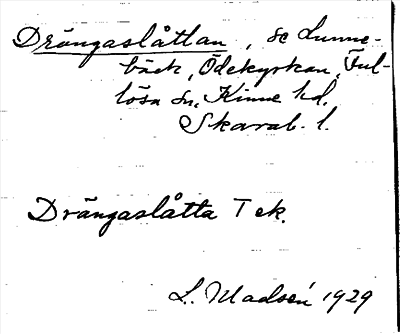 Drängaslåttan, se Lunne-
bäck, Ödekyrkan, Ful-
lösa sn, Kinne hd,
Skarab. l.
Drängaslåtta T ek.
L. Madsén 1929